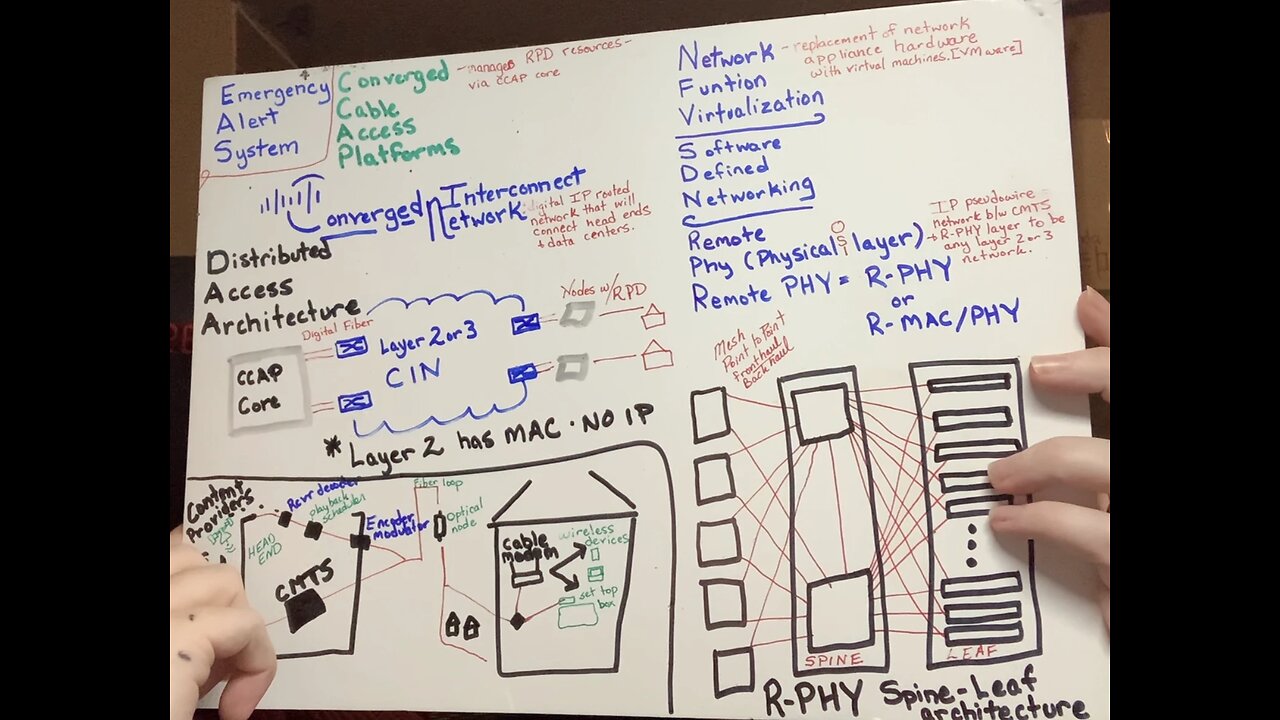 Emergency
Alert
System
Converged - manages RPD resources -
via CCAP core
Cable
Access
Platforms
Converged Interconnect
Network
digital IP routed
network that will
connect head ends
+ data centers.
Distributed
Access
Architecture
Digital Fiber
CCAP
Core
Layer 2 or 3
CIN
Nodes w/RPD
* Layer 2 has MAC · NO IP
Content
Providers
HEAD
END
Rcvr decoder
playback
scheduler
Encoder
modulator
CMTS
Fiber loop
Optical
node
cable
modem
wireless
devices
set top
box
Network - replacement of network
appliance hardware
with virtual machines.[VMware]
Funtion
Virtualization
Software
Defined
Networking
Remote
Phy (Physical layer)
OSI
IP pseudowire
network b/w CMTS
+ R-PHY layer to be
any layer 2 or 3
network.
Remote PHY = R-PHY
or
R-MAC/PHY
Mesh
Point to Point
fronthaul
Backhaul
SPINE
LEAF
R-PHY Spine-Leaf
architecture